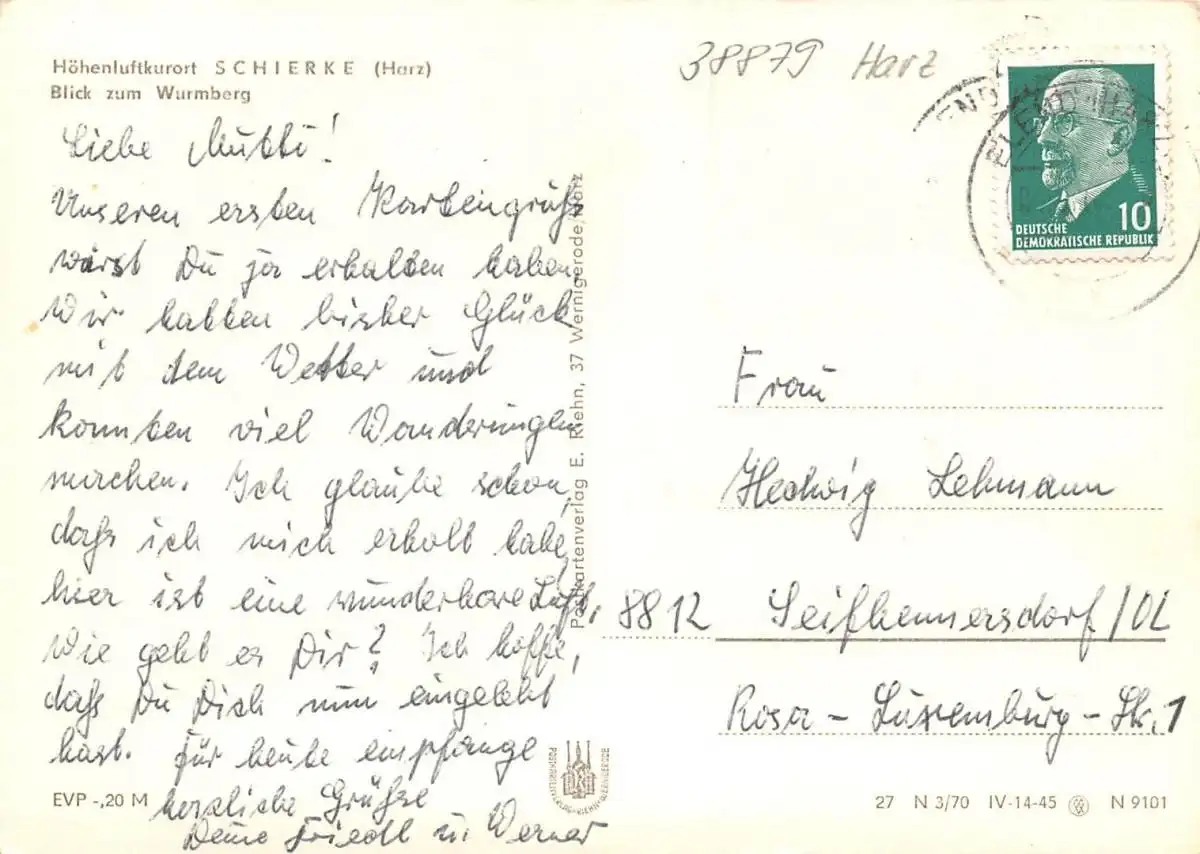 38879 Harz
Höhenluftkurort SCHIERKE (Harz)
Blick zum Wurmberg
Liebe Mutti!
Unseren ersten Kartengruß
wirst Du ja erhalten haben.
Wir hatten bisher Glück
mit dem Wetter und
konnten viel Wanderungen
machen. Ich glaube schon,
daß ich mich erholt habe,
hier ist eine wunderbare Luft.
Wie geht es Dir? Ich hoffe,
daß Du Dich nun eingelebt
hast. Für heute empfange
herzliche Grüße
Deine Friedl u. Werner
EVP -,20 M
Postkartenverlag E. Riehn, 37 Wernigerode/Harz
ELEND (HARZ)
10
DEUTSCHE
DEMOKRATISCHE REPUBLIK
Frau
Hedwig Lehmann
8812 Seifhennersdorf/OL
Rosa-Luxemburg-Str. 1
27 N 3/70 IV-14-45 N 9101